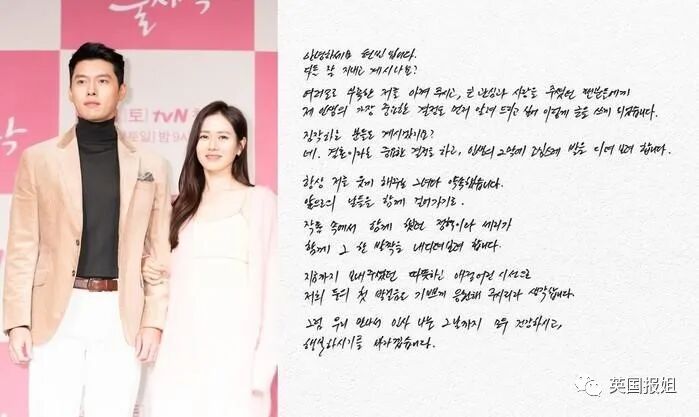 불시착
토] tvN
토일] 밤 9
착
안녕하세요 현빈입니다.
다들 잘 지내고 계시나요?
여러모로 부족한 저를 아껴 주시고, 또 관심과 사랑을 주셨던 팬분들에게
제 인생의 가장 중요한 결정을 먼저 알려 드리고 싶어 이렇게 글을 쓰게 되었습니다.
짐작하는 분들도 계시겠지요?
네. 결혼이라는 중요한 결정을 하고, 인생의 2막에 조심스레 발을 디뎌 보려 합니다.
항상 저를 웃게 해주는 그녀와 약속했습니다.
앞으로의 날들을 함께 걸어가기로.
작품 속에서 함께 했던 정혁이와 세리가
함께 그 한 발짝을 내디뎌보려 합니다.
지금까지 보내주셨던 따뜻하고 애정어린 시선으로
저희 둘의 첫 발걸음을 기쁘게 응원해 주시리라 생각합니다.
그럼 우리 만나서 인사 나눌 그날까지 모두 건강하시고,
행복하시기를 바라겠습니다.
英国报姐